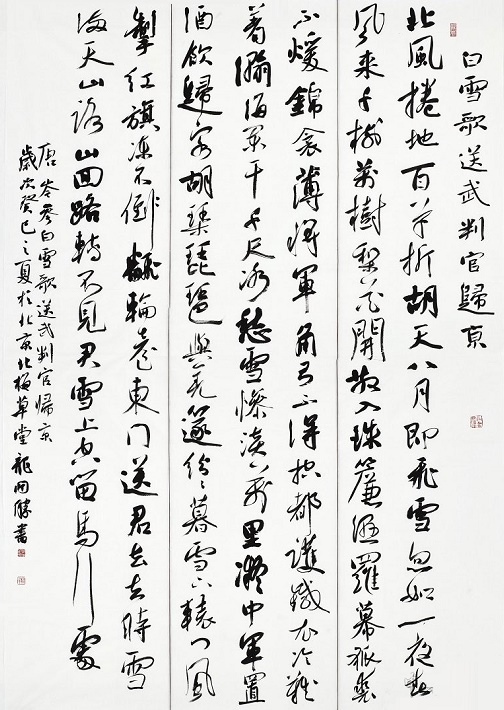 白雪歌送武判官歸京
北風捲地百草折胡天八月即飛雪忽如一夜春
風來千樹萬樹梨花開散入珠簾濕羅幕狐裘
不煖錦衾薄將軍角弓不得控都護鐵衣冷難
著瀚海闌干千尺冰愁雪慘淡萬里凝中軍置
酒飲歸客胡琴琵琶與羌篴紛〻暮雪下轅門風
掣紅旗凍不倒翻輪臺東門送君去去時雪
滿天山路山回路轉不見君雪上空留馬行處
唐岑參白雪歌送武判官歸京
歲次癸巳之夏於北京北梅草堂龍開勝書